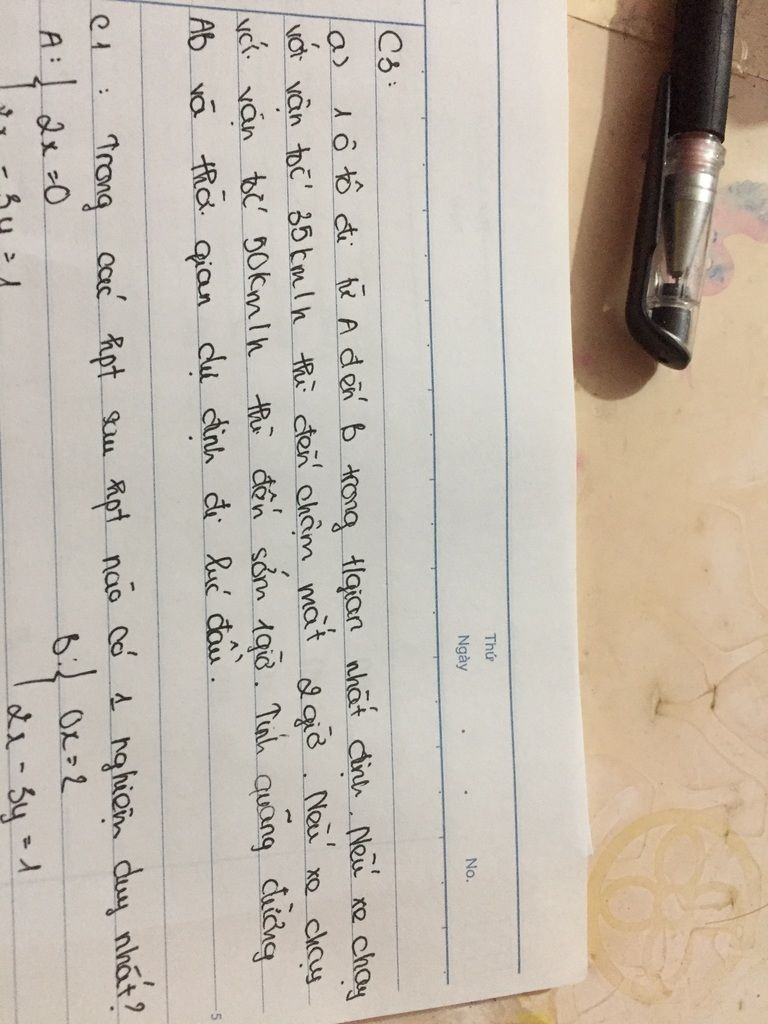 Thứ
Ngày
No.
C3:
a) 1 ô tô đi từ A đến B trong t/gian nhất định. Nếu xe chạy
với vận tốc 35km/h thì đến chậm mất 2 giờ. Nếu xe chạy
với vận tốc 50km/h thì đến sớm 1 giờ. Tính quãng đường
AB và thời gian dự định đi lúc đầu.
C1: Trong các hpt sau hpt nào có 1 nghiệm duy nhất?
A: { 2x = 0 B: { 0x = 2
2x - 3y = 1 2x - 3y = 1
5